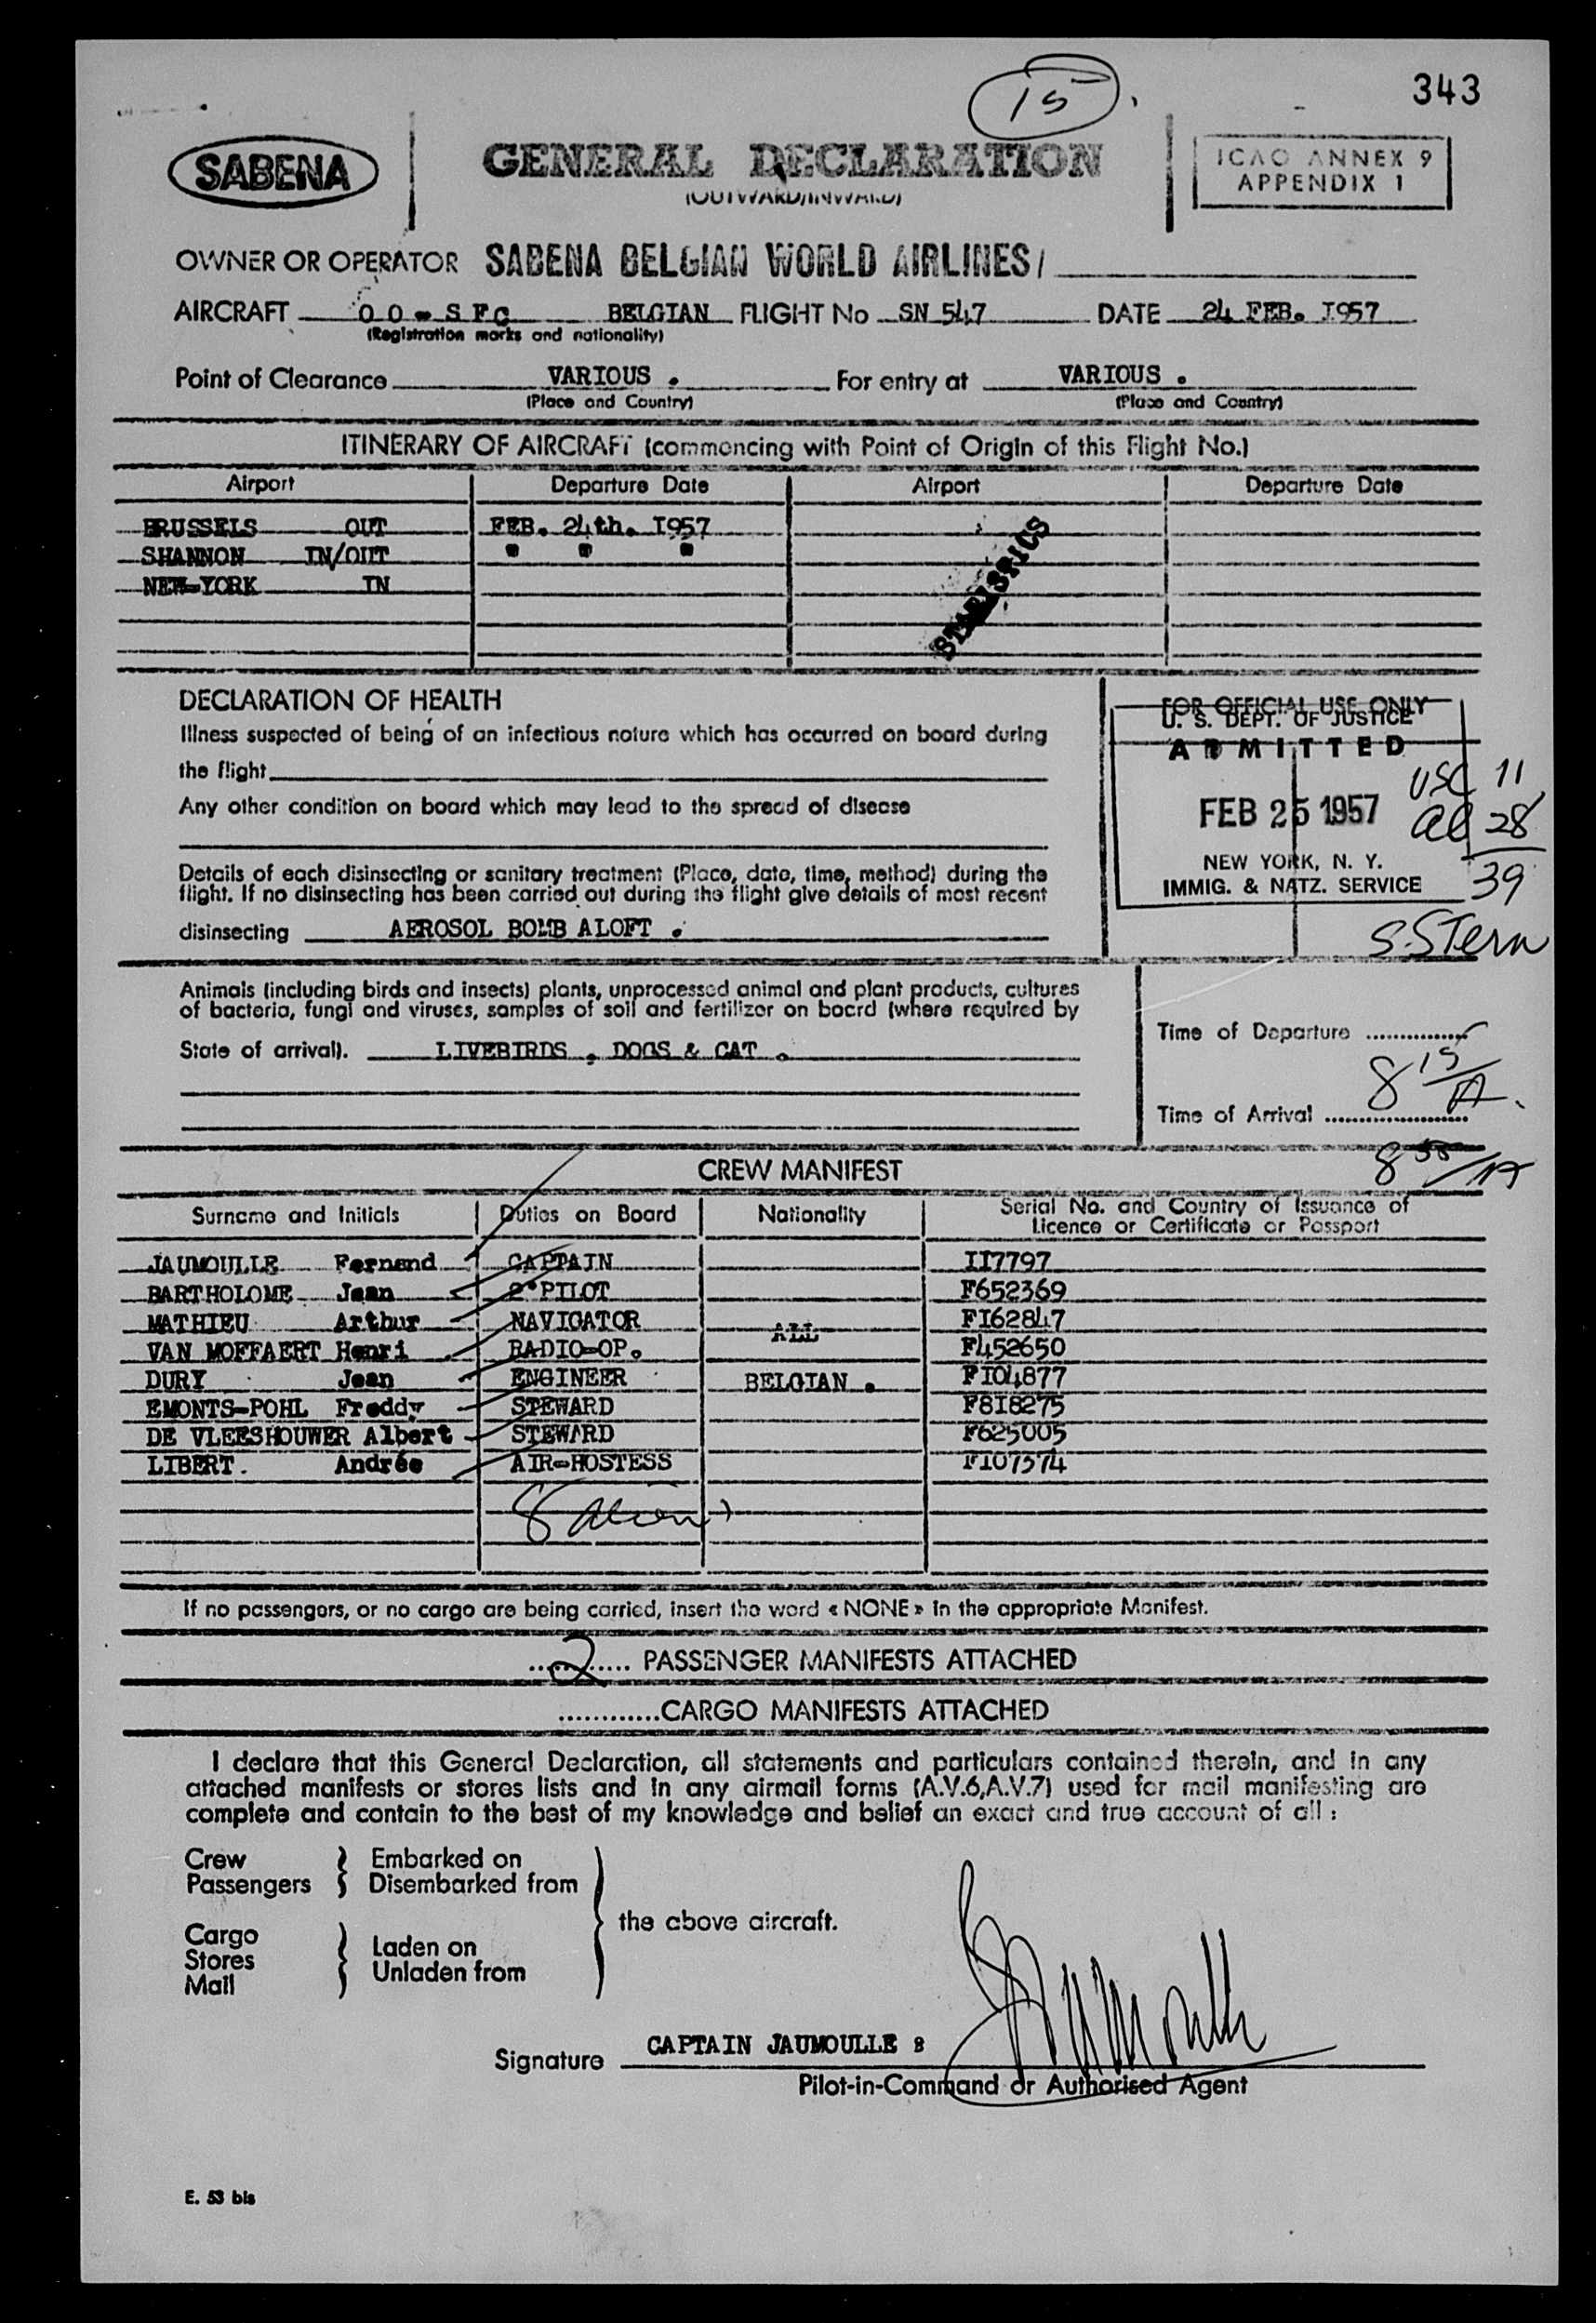 15
343
SABENA
GENERAL DECLARATION
(OUTWARD/INWARD)
ICAO ANNEX 9
APPENDIX 1
OWNER OR OPERATOR SABENA BELGIAN WORLD AIRLINES/
AIRCRAFT OO-SFC BELGIAN FLIGHT No SN 547 DATE 24 FEB. I957
(Registration marks and nationality)
Point of Clearance VARIOUS . For entry at VARIOUS .
(Place and Country) (Place and Country)
ITINERARY OF AIRCRAFT (commencing with Point of Origin of this Flight No.)
Airport Departure Date Airport Departure Date
BRUSSELS OUT FEB. 24th. I957
SHANNON IN/OUT " " "
NEW-YORK IN
STATISTICS
DECLARATION OF HEALTH
Illness suspected of being of an infectious nature which has occurred on board during
the flight
Any other condition on board which may lead to the spread of disease
Details of each disinsecting or sanitary treatment (Place, date, time, method) during the
flight. If no disinsecting has been carried out during the flight give details of most recent
disinsecting AEROSOL BOMB ALOFT .
FOR OFFICIAL USE ONLY
U. S. DEPT. OF JUSTICE
ADMITTED
FEB 25 1957
NEW YORK, N. Y.
IMMIG. & NATZ. SERVICE
USC 11
al 28
39
S. Stern
Animals (including birds and insects) plants, unprocessed animal and plant products, cultures
of bacteria, fungi and viruses, samples of soil and fertilizer on board (where required by
State of arrival). LIVEBIRDS , DOGS & CAT .
Time of Departure
8 15/A.
Time of Arrival
8 55/A
CREW MANIFEST
Surname and Initials Duties on Board Nationality Serial No. and Country of Issuance of
Licence or Certificate or Passport
JAUMOULLE Fernand CAPTAIN II7797
BARTHOLOME Jean 2°PILOT F652369
MATHIEU Arthur NAVIGATOR ALL FI62847
VAN MOFFAERT Henri RADIO-OP. F452650
DURY Jean ENGINEER BELGIAN . FI04877
EMONTS-POHL Freddy STEWARD F8I8275
DE VLEESHOUWER Albert STEWARD F625005
LIBERT. Andrée AIR-HOSTESS FI07374
8 alien
If no passengers, or no cargo are being carried, insert the word « NONE » in the appropriate Manifest.
2 PASSENGER MANIFESTS ATTACHED
............CARGO MANIFESTS ATTACHED
I declare that this General Declaration, all statements and particulars contained therein, and in any
attached manifests or stores lists and in any airmail forms (A.V.6,A.V.7) used for mail manifesting are
complete and contain to the best of my knowledge and belief an exact and true account of all :
Crew Embarked on
Passengers Disembarked from
the above aircraft.
Cargo
Stores Laden on
Mail Unladen from
Signature CAPTAIN JAUMOULLE : Jaumoulle
Pilot-in-Command or Authorised Agent
E. 53 bis